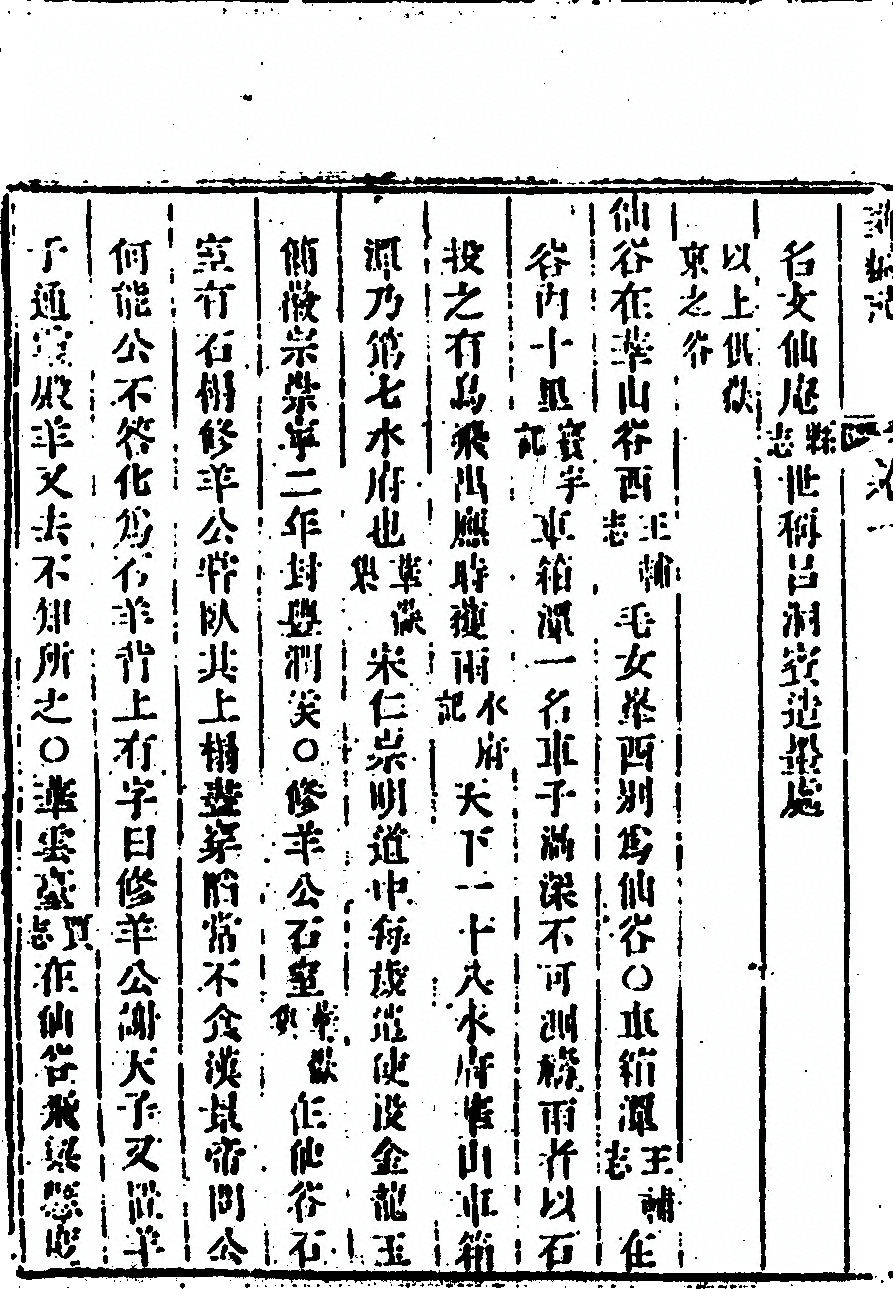 名女仙庵縣志世稱呂洞賓造墨處
以上俱嶽
東之谷
仙谷在華山谷西王補志毛女峯西別爲仙谷〇車箱潭王補志在
谷內十里寰宇記車箱潭一名車子渦深不可測禱雨者以石
投之有鳥飛出應時獲雨水府記天下一十八水府華山車箱
潭乃第七水府也華嶽集宋仁宗明道中每歲遣使投金龍玉
簡徽宗崇寧二年封豐潤侯〇修羊公石室華嶽集在仙谷石
室有石榻修羊公嘗臥其上榻盡穿陷常不食漢景帝問公
何能公不答化爲石羊背上有字曰修羊公謝天子又置羊
于通靈殿羊又去不知所之〇華雲臺賈志在仙谷